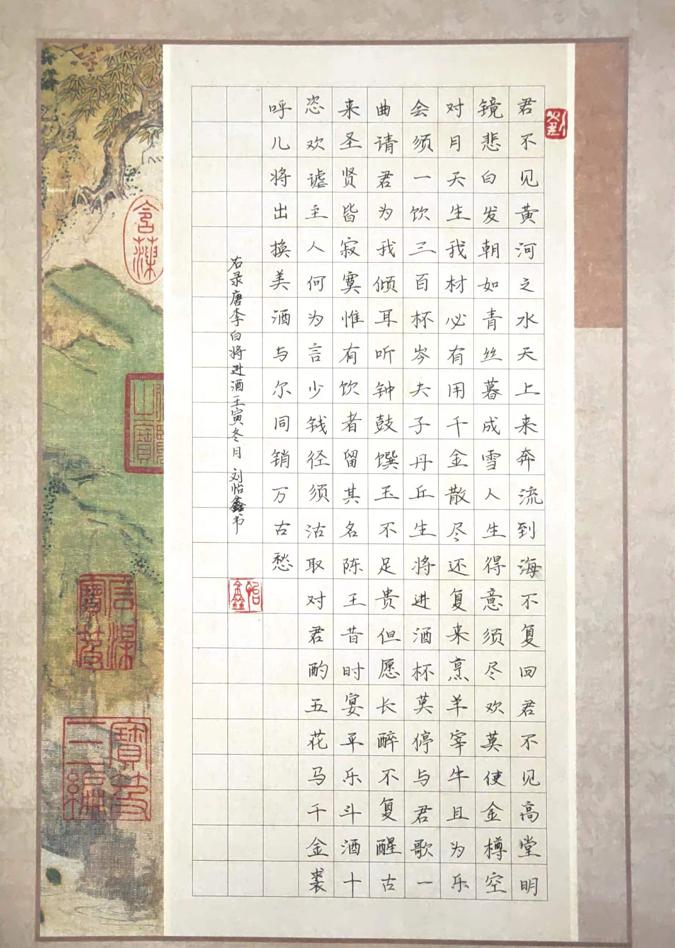 劉
君不见黄河之水天上来奔流到海不复回君不见高堂明
镜悲白发朝如青丝暮成雪人生得意须尽欢莫使金樽空
对月天生我材必有用千金散尽还复来烹羊宰牛且为乐
会须一饮三百杯岑夫子丹丘生将进酒杯莫停与君歌一
曲请君为我倾耳听钟鼓馔玉不足贵但愿长醉不复醒古
来圣贤皆寂寞惟有饮者留其名陈王昔时宴平乐斗酒十
恣欢谑主人何为言少钱径须沽取对君酌五花马千金裘
呼儿将出换美酒与尔同销万古愁
右录唐李白将进酒壬寅冬月 刘怡鑫书
怡鑫
寶笈三編